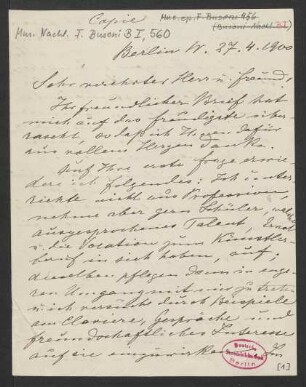 Copie
Mus. ep. F. Busoni 456
(Busoni Nachl. B I)
Mus. Nachl. F. Busoni B I, 560
Berlin W. 27. 4. 1900
Sehr verehrter Herr u. Freund,
Ihr freundlicher Brief hat
mich auf das freudigste über-
rascht, so dass ich Ihnen dafür
aus vollem Herzen danke.
Auf Ihre erste Frage erwie-
dere ich folgendes: Ich unter-
richte nicht aus Profession,
nehme aber gern Schüler, welche
ausgesprochenes Talent, Ernst
u. die Vocation zum Künstler-
beruf in sich haben, auf;
dieselben pflegen dann in enge-
ren Umgang mit mir zu treten
und ich versuche durch Beispiele
am Claviere, Gespräche und
freundschaftliches Interesse
auf sie einzuwirken. In
[1]
Deutsche
Staatsbibliothek
Berlin